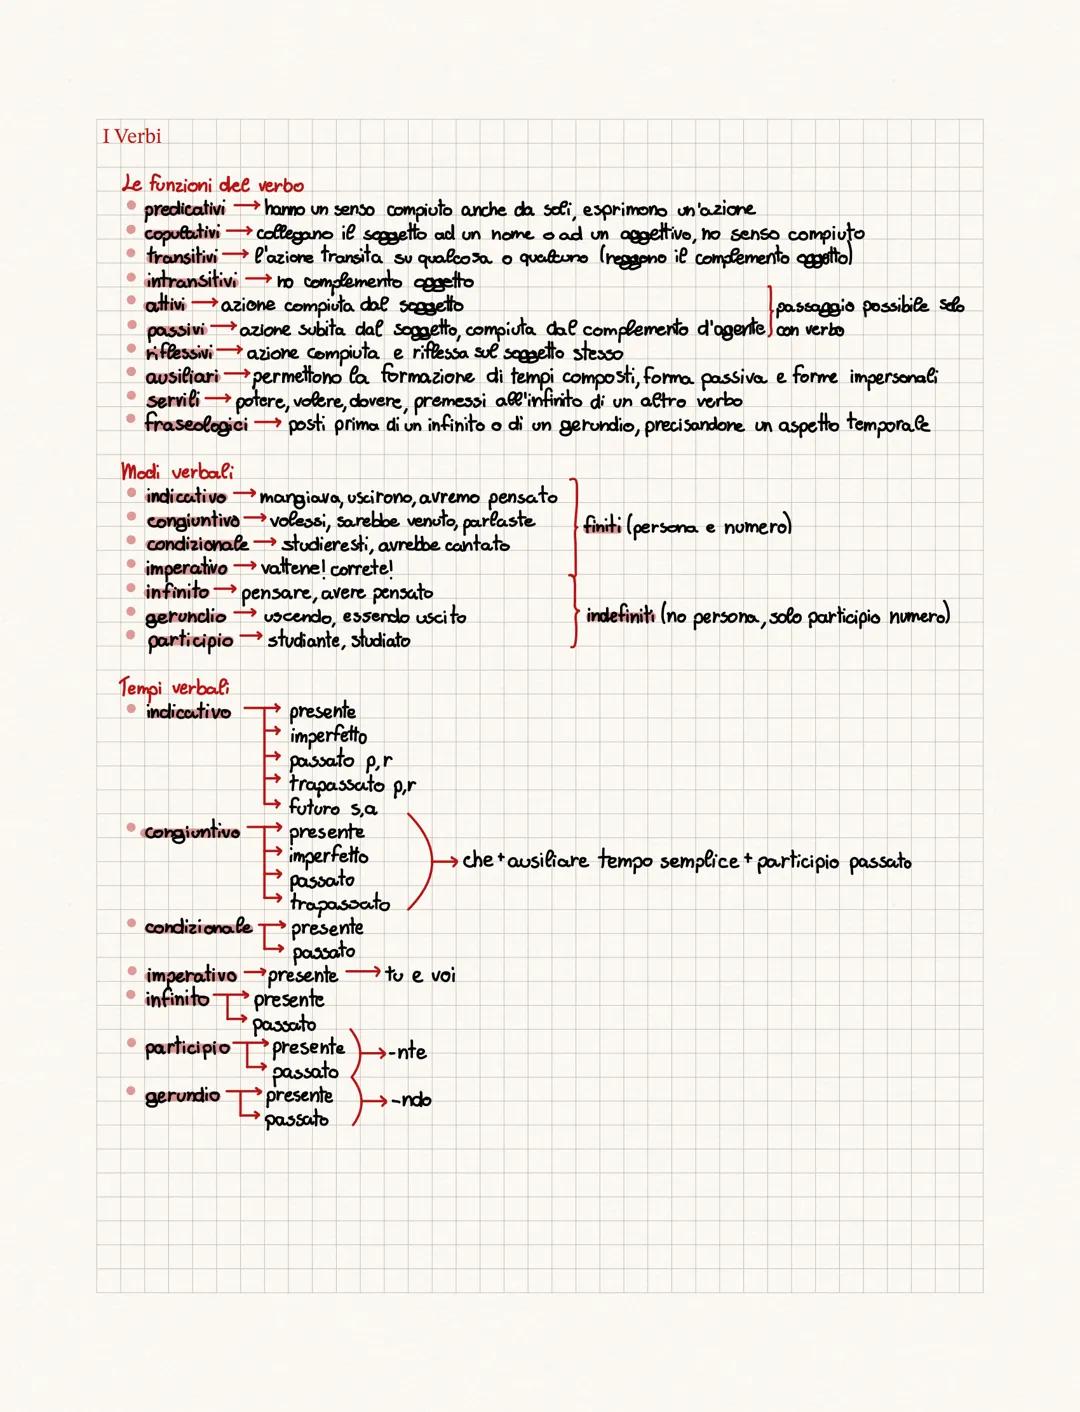 I Verbi
Le funzioni del verbo
• predicativi → hanno un senso compiuto anche da soli, esprimono un'azione
• copulativi → collegano il soggetto ad un nome o ad un aggettivo, no senso compiuto
• transitivi → l'azione transita su qualcosa o qualcuno (reggono il complemento oggetto)
• intransitivi → no complemento oggetto
• attivi → azione compiuta dal soggetto
passaggio possibile solo
• passivi → azione subita dal soggetto, compiuta dal complemento d'agente
con verbo
• riflessivi → azione compiuta e riflessa sul soggetto stesso
• ausiliari → permettono la formazione di tempi composti, forma passiva e forme impersonali
• servili → potere, volere, dovere, premessi all'infinito di un altro verbo
• fraseologici → posti prima di un infinito o di un gerundio, precisandone un aspetto temporale
Modi verbali
• indicativo → mangiava, uscirono, avremo pensato
• congiuntivo → volessi, sarebbe venuto, parlaste
finiti (persona e numero)
• condizionale → studieresti, avrebbe cantato
• imperativo → vattene! correte!
• infinito → pensare, avere pensato
• gerundio → uscendo, essendo uscito
indefiniti (no persona, solo participio numero)
• participio → studiante, studiato
Tempi verbali
• indicativo → presente
→ imperfetto
→ passato p,r
→ trapassato p,r
→ futuro s,a
• congiuntivo → presente
→ imperfetto
→ che + ausiliare tempo semplice + participio passato
→ passato
→ trapassato
• condizionale → presente
→ passato
• imperativo → presente → tu e voi
• infinito → presente
→ passato
• participio → presente → -nte
→ passato
• gerundio → presente → -ndo
→ passato